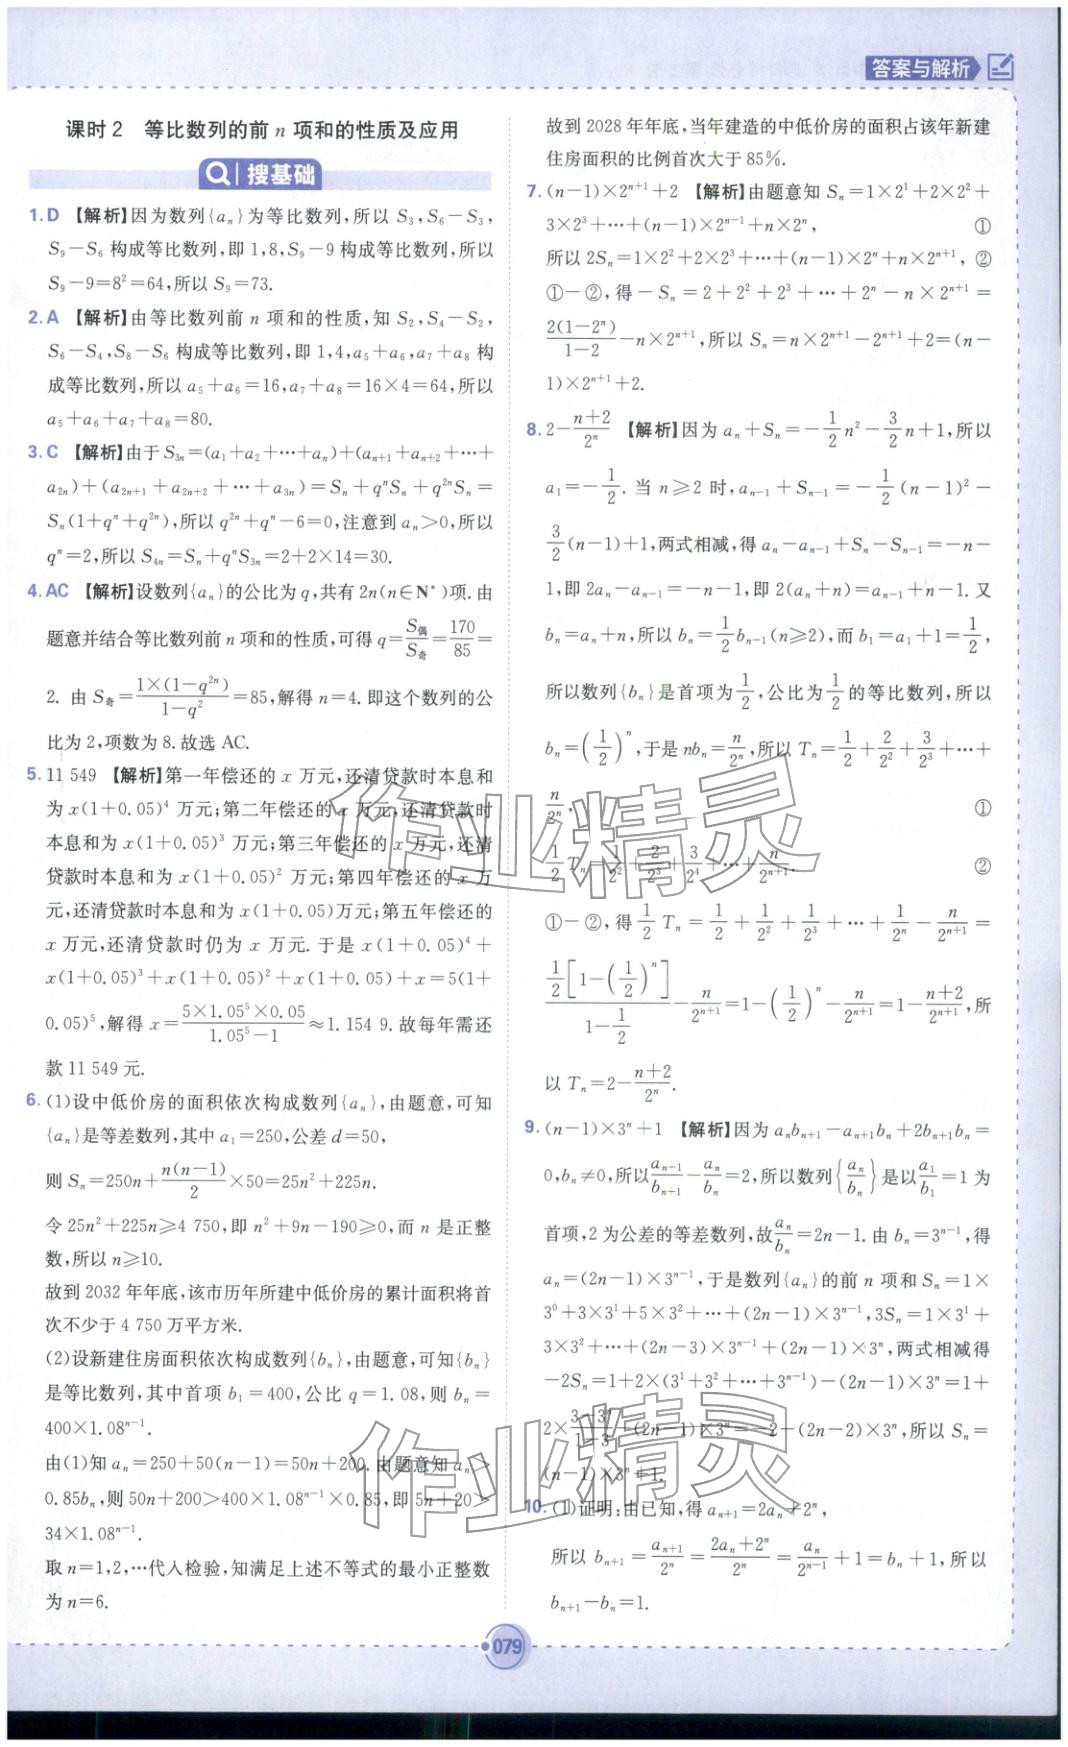 答案与解析
课时2 等比数列的前 n 项和的性质及应用
搜基础
1. D 【解析】因为数列{aₙ}为等比数列,所以 S₃,S₆−S₃,
S₉−S₆ 构成等比数列,即 1,8,S₉−9 构成等比数列,所以
S₉−9=8²=64,所以 S₉=73.
2. A 【解析】由等比数列前 n 项和的性质,知 S₂,S₄−S₂,
S₆−S₄,S₈−S₆ 构成等比数列,即 1,4,a₅+a₆,a₇+a₈ 构
成等比数列,所以 a₅+a₆=16,a₇+a₈=16×4=64,所以
a₅+a₆+a₇+a₈=80.
3. C 【解析】由于 S₃ₙ=(a₁+a₂+⋯+aₙ)+(aₙ₊₁+aₙ₊₂+⋯+
a₂ₙ)+(a₂ₙ₊₁+a₂ₙ₊₂+⋯+a₃ₙ)=Sₙ+qⁿSₙ+q²ⁿSₙ=
Sₙ(1+qⁿ+q²ⁿ),所以 q²ⁿ+qⁿ−6=0,注意到 aₙ>0,所以
qⁿ=2,所以 S₄ₙ=Sₙ+qⁿS₃ₙ=2+2×14=30.
4. AC 【解析】设数列{aₙ}的公比为 q,共有 2n(n∈N*)项. 由
题意并结合等比数列前 n 项和的性质,可得 q=S偶/S奇=170/85=
2. 由 S奇=1×(1−q²ⁿ)/(1−q²)=85,解得 n=4. 即这个数列的公
比为 2,项数为 8. 故选 AC.
5. 11 549 【解析】第一年偿还的 x 万元,还清贷款时本息和
为 x(1+0.05)⁴ 万元;第二年偿还的 x 万元,还清贷款时
本息和为 x(1+0.05)³ 万元;第三年偿还的 x 万元,还清
贷款时本息和为 x(1+0.05)² 万元;第四年偿还的 x 万
元,还清贷款时本息和为 x(1+0.05)万元;第五年偿还的
x 万元,还清贷款时仍为 x 万元. 于是 x(1+0.05)⁴+
x(1+0.05)³+x(1+0.05)²+x(1+0.05)+x=5(1+
0.05)⁵,解得 x=(5×1.05⁵×0.05)/(1.05⁵−1)≈1.154 9. 故每年需还
款 11 549 元.
6. (1)设中低价房的面积依次构成数列{aₙ},由题意,可知
{aₙ}是等差数列,其中 a₁=250,公差 d=50,
则 Sₙ=250n+n(n−1)/2×50=25n²+225n.
令 25n²+225n≥4 750,即 n²+9n−190≥0,而 n 是正整
数,所以 n≥10.
故到 2032 年年底,该市历年所建中低价房的累计面积将首
次不少于 4 750 万平方米.
(2)设新建住房面积依次构成数列{bₙ},由题意,可知{bₙ}
是等比数列,其中首项 b₁=400,公比 q=1.08,则 bₙ=
400×1.08ⁿ⁻¹.
由(1)知 aₙ=250+50(n−1)=50n+200. 由题意知 aₙ>
0.85bₙ,则 50n+200>400×1.08ⁿ⁻¹×0.85,即 5n+20>
34×1.08ⁿ⁻¹.
取 n=1,2,⋯代入检验,知满足上述不等式的最小正整数
为 n=6.
故到 2028 年年底,当年建造的中低价房的面积占该年新建
住房面积的比例首次大于 85%.
7. (n−1)×2ⁿ⁺¹+2 【解析】由题意知 Sₙ=1×2¹+2×2²+
3×2³+⋯+(n−1)×2ⁿ⁻¹+n×2ⁿ, ①
所以 2Sₙ=1×2²+2×2³+⋯+(n−1)×2ⁿ+n×2ⁿ⁺¹, ②
①−②,得−Sₙ=2+2²+2³+⋯+2ⁿ−n×2ⁿ⁺¹=
2(1−2ⁿ)/(1−2)−n×2ⁿ⁺¹,所以 Sₙ=n×2ⁿ⁺¹−2ⁿ⁺¹+2=(n−
1)×2ⁿ⁺¹+2.
8. 2−(n+2)/2ⁿ 【解析】因为 aₙ+Sₙ=−1/2n²−3/2n+1,所以
a₁=−1/2. 当 n≥2 时,aₙ₋₁+Sₙ₋₁=−1/2(n−1)²−
3/2(n−1)+1,两式相减,得 aₙ−aₙ₋₁+Sₙ−Sₙ₋₁=−n−
1,即 2aₙ−aₙ₋₁=−n−1,即 2(aₙ+n)=aₙ₋₁+n−1. 又
bₙ=aₙ+n,所以 bₙ=1/2bₙ₋₁(n≥2),而 b₁=a₁+1=1/2,
所以数列{bₙ}是首项为1/2,公比为1/2的等比数列,所以
bₙ=(1/2)ⁿ,于是 nbₙ=n/2ⁿ,所以 Tₙ=1/2+2/2²+3/2³+⋯+
n/2ⁿ, ①
1/2Tₙ=1/2²+2/2³+3/2⁴+⋯+n/2ⁿ⁺¹. ②
①−②,得1/2Tₙ=1/2+1/2²+1/2³+⋯+1/2ⁿ−n/2ⁿ⁺¹=
1/2[1−(1/2)ⁿ]/(1−1/2)−n/2ⁿ⁺¹=1−(1/2)ⁿ−n/2ⁿ⁺¹=1−(n+2)/2ⁿ⁺¹,所
以 Tₙ=2−(n+2)/2ⁿ.
9. (n−1)×3ⁿ+1 【解析】因为 aₙbₙ₊₁−aₙ₊₁bₙ+2bₙ₊₁bₙ=
0,bₙ≠0,所以aₙ₊₁/bₙ₊₁−aₙ/bₙ=2,所以数列{aₙ/bₙ}是以a₁/b₁=1 为
首项,2 为公差的等差数列,故aₙ/bₙ=2n−1. 由 bₙ=3ⁿ⁻¹,得
aₙ=(2n−1)×3ⁿ⁻¹,于是数列{aₙ}的前 n 项和 Sₙ=1×
3⁰+3×3¹+5×3²+⋯+(2n−1)×3ⁿ⁻¹,3Sₙ=1×3¹+
3×3²+⋯+(2n−3)×3ⁿ⁻¹+(2n−1)×3ⁿ,两式相减得
−2Sₙ=1+2×(3¹+3²+⋯+3ⁿ⁻¹)−(2n−1)×3ⁿ=1+
2×(3−3ⁿ)/(1−3)−(2n−1)×3ⁿ=−2−(2n−2)×3ⁿ,所以 Sₙ=
(n−1)×3ⁿ+1.
10. (1)证明:由已知,得 aₙ₊₁=2aₙ+2ⁿ,
所以 bₙ₊₁=aₙ₊₁/2ⁿ=(2aₙ+2ⁿ)/2ⁿ=aₙ/2ⁿ⁻¹+1=bₙ+1,所以
bₙ₊₁−bₙ=1.
079
作业精灵
作业精灵